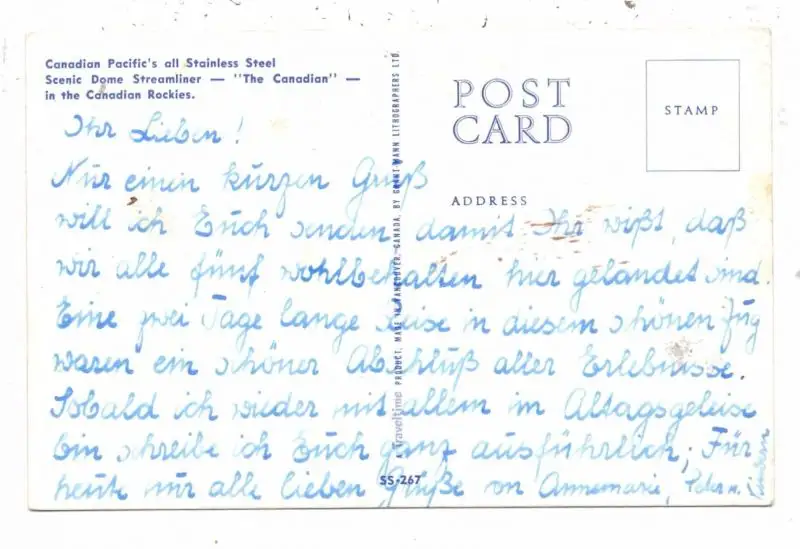 Canadian Pacific's all Stainless Steel
Scenic Dome Streamliner — "The Canadian" —
in the Canadian Rockies.
POST
CARD
STAMP
ADDRESS
Ihr Lieben!
Nur einen kurzen Gruß
will ich Euch senden damit Ihr wißt, daß
wir alle fünf wohlbehalten hier gelandet sind.
Eine zwei Tage lange Reise in diesem schönen Zug
waren ein schöner Abschluß aller Erlebnisse.
Sobald ich wieder mit allem im Altagsgeleise
bin schreibe ich Euch ganz ausführlich; Für
heute nur alle lieben Grüße von Annemarie, Peter u. Kindern
A traveltime PRODUCT, MADE IN VANCOUVER, CANADA, BY GRANT-MANN LITHOGRAPHERS LTD.
SS-267